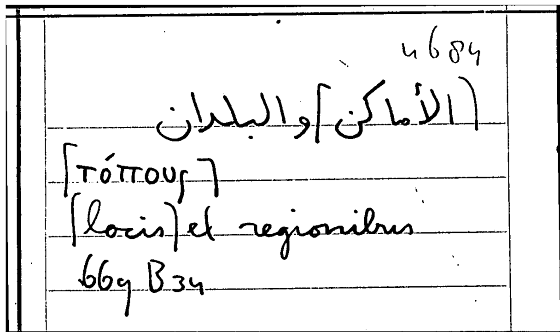 4684
[الأماكن] والبلدان
[τόπους]
[locis] et regionibus
669 B34